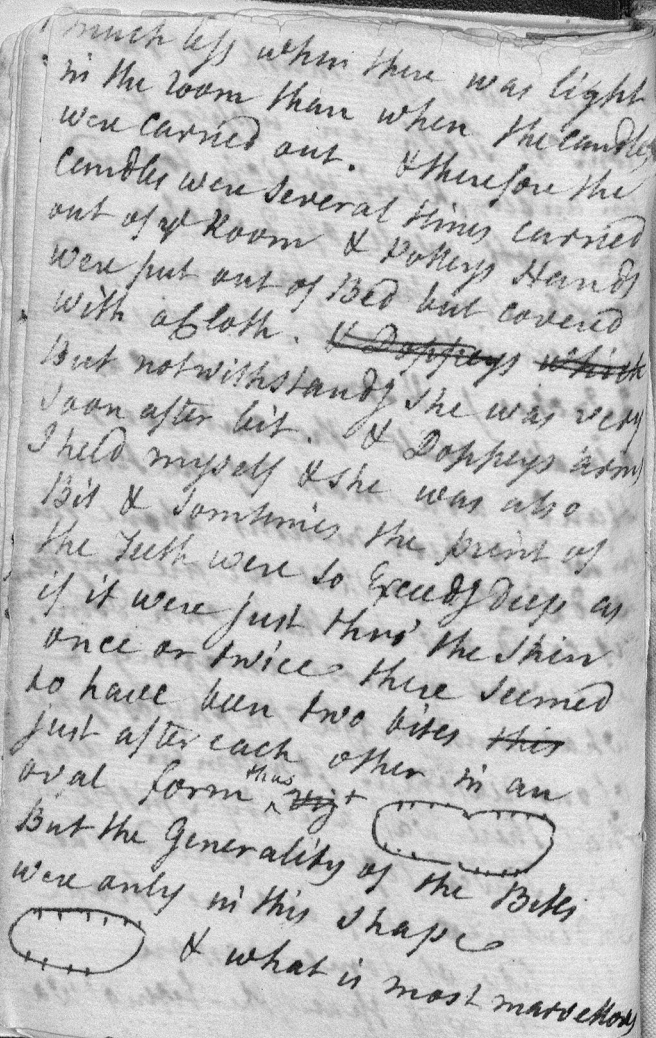 much less when there was light
in the room than when the candles
were carried out. & therefore the
Candles were several times carried
out of ye Room & Molleys Hands
were put out of Bed but covered
with a Cloth. & Dobbeys which
But notwithstandg she was very
soon after bit. & Dobbeys arms
I held myself & she was also
Bit & Somtimes the print of
the Teeth were so Exceedg deep as
if it were just thro' the Skin
once or twice there seemed
to have been two bites this
just after each other in an
oval form thus
But the Generality of the Bites
were only in this shape
& what is most marvellous